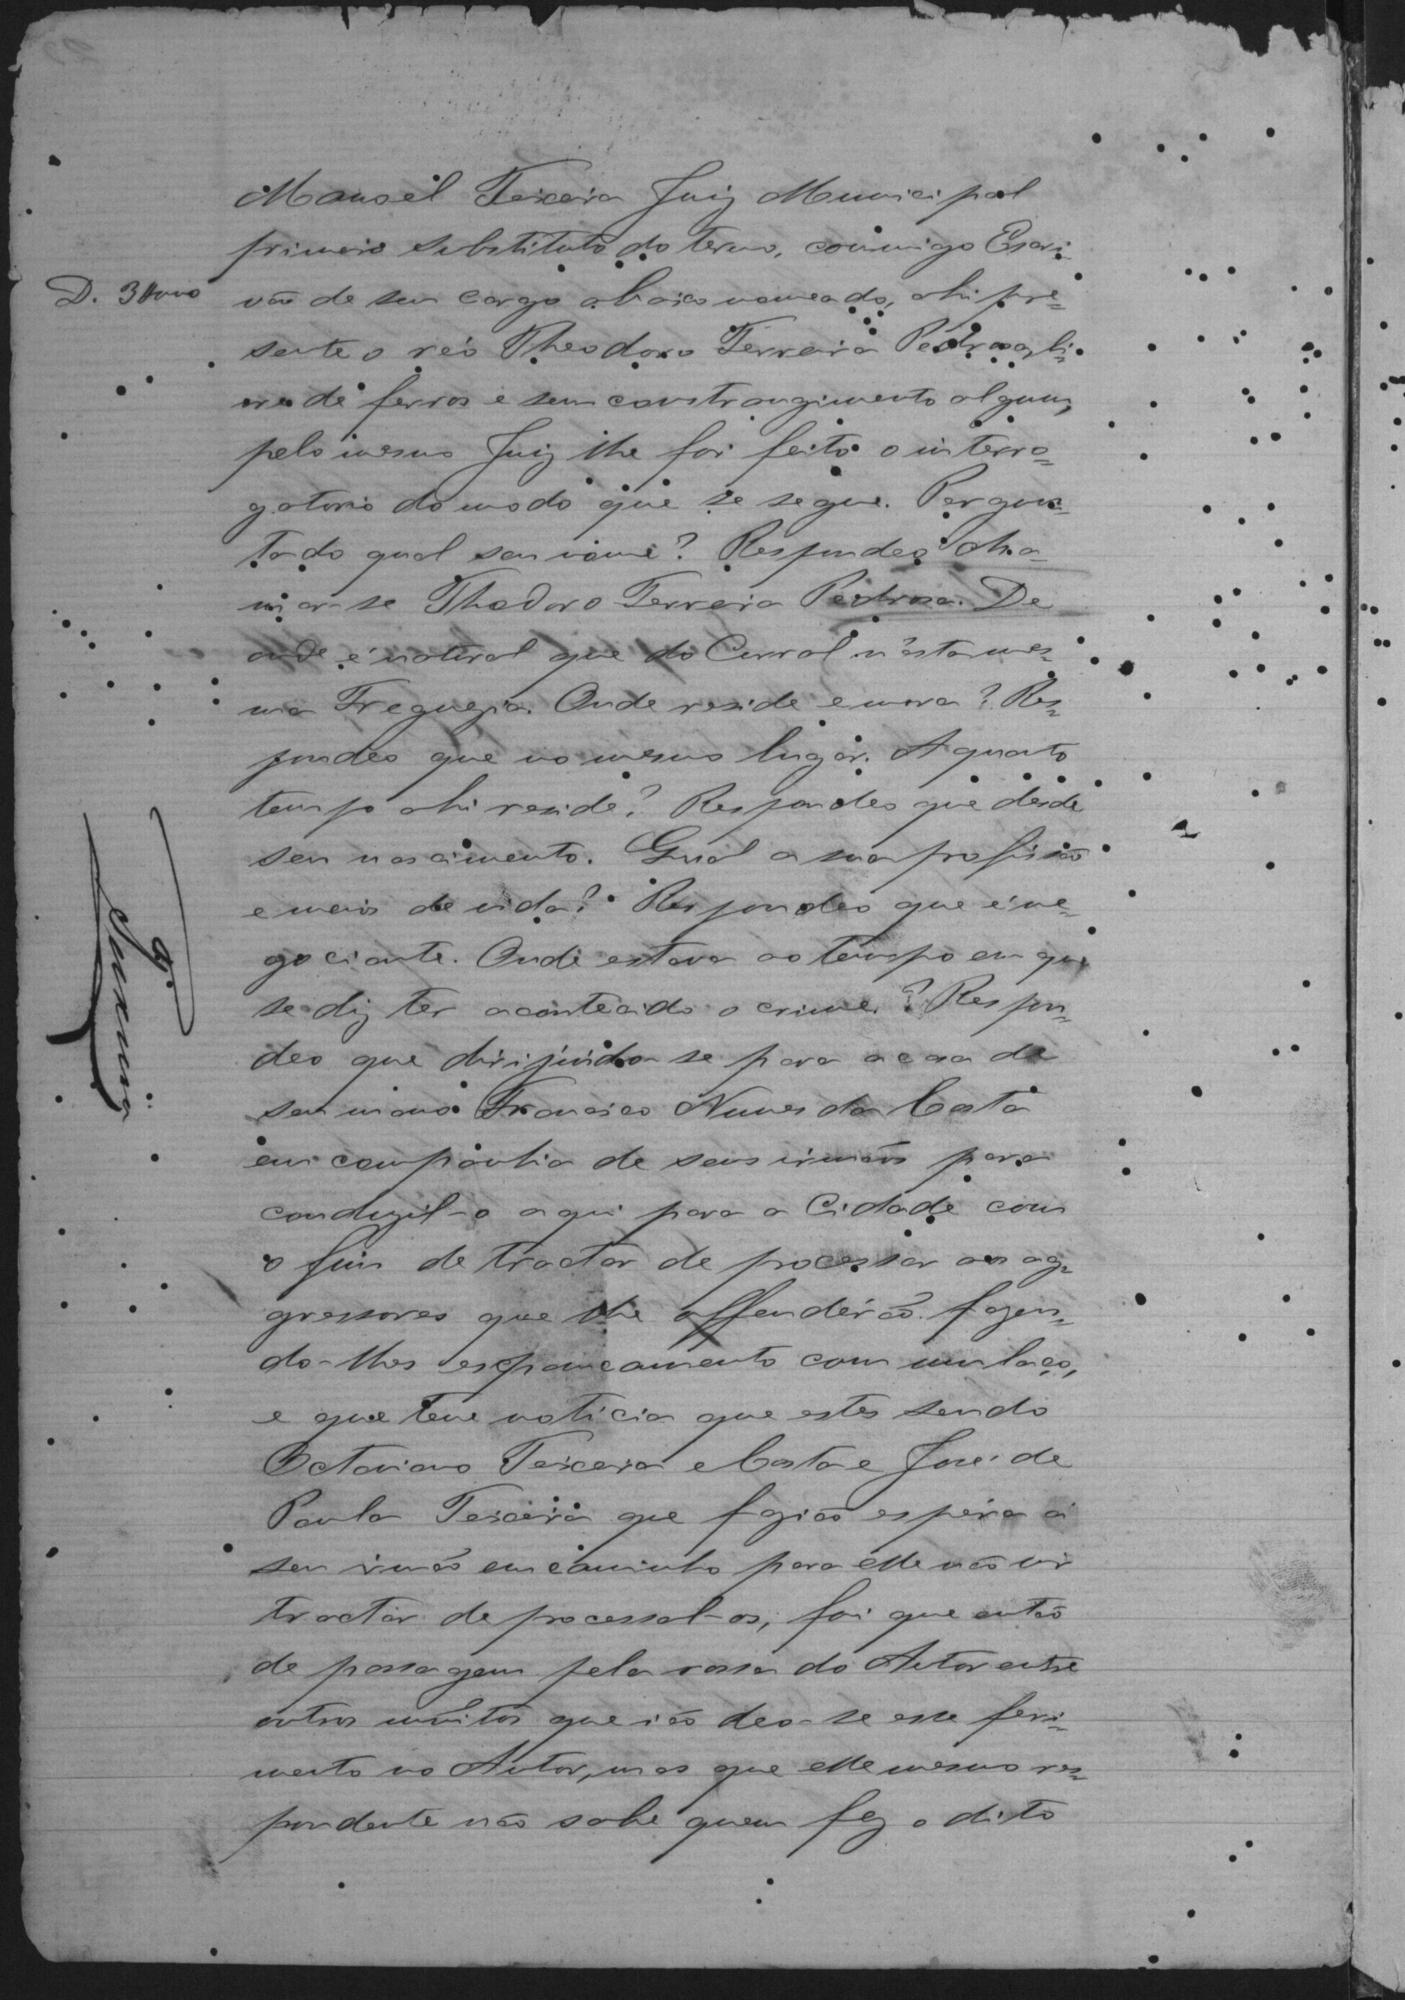 Manoel Teixeira Juiz Municipal
primeiro substituto do termo, commigo Escri=
D. 3$000
vão de seu cargo abaixo nomeado, ahi pre=
sente o réo Theodoro Ferreira Pedrosa, li=
vre de ferros e sem constrangimento algum,
pelo mesmo Juiz lhe foi feito o interro=
gatorio do modo que se segue. Pergun=
tado qual seu nome? Respondeo cha=
mar-se Theodoro Ferreira Pedrosa. De
onde é natural que do Curral n'esta mes=
ma Freguezia. Onde reside e mora? Res=
pondeo que no mesmo lugar. A quanto
tempo ahi reside? Respondeo que desde
seu nascimento. Qual a sua profissão
e meios de vida? Respondeo que é ne=
gociante. Onde estava ao tempo em que
se diz ter acontecido o crime? Respon=
deo que dirijindo-se para a casa de
seu mano Francisco Nunes da Costa
em companhia de seus irmãos para
conduzil-o aqui para a Cidade com
o fim de tractar de processar aos ag=
gressores que lhe offenderão fazen=
do-lhes espancamento com um laço,
e que teve noticia que estes sendo
Octaviano Teixeira e Costa e José de
Paula Teixeira que fazião espera á
seu irmão em caminho para elle não vir
tractar de processal-os, foi que então
de passagem pela rossa do Autor entre
outros muitos que ião deo-se esse feri=
mento no Autor, mas que elle mesmo res=
pondente não sabe quem fez o dito